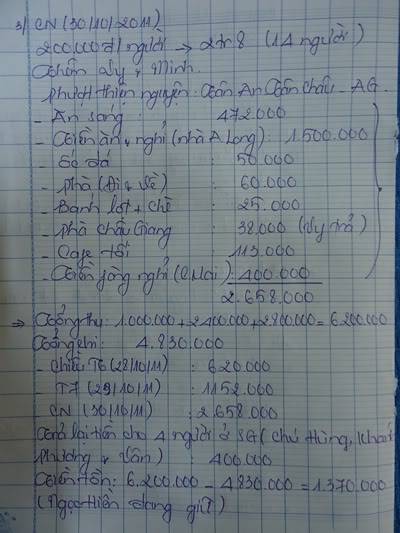 3/ CN (30/10/2011)
200.000đ/người → 2tr8 (14 người)
Vy + Minh.
An Châu - AG.
- Ăn sáng : 472.000
- Tiền ăn + nghỉ (nhà A Long) : 1.500.000
- đá : 50.000
- Phà (Đi + Về) : 60.000
- Bánh lọt + chè : 25.000
- Phà Châu Giang : 38.000 (Vy trả)
- Cafe tối : 113.000
- Tiền phòng nghỉ (C Mai) : 400.000
2.658.000
⇒ Tổng thu : 1.000.000 + 2400.000 + 2800.000 = 6.200.000
Tổng chi : 4.830.000
- Chiều T6 (28/10/11) : 620.000
- T7 (29/10/11) : 1152.000
- CN (30/10/11) : 2.658.000
Trả lại tiền cho 4 người ở SG (chú Hùng,
Phương + Vân) : 400.000
Tiền tồn : 6.200.000 - 4830.000 = 1.370.000
(Ngọc Hiền đang giữ)